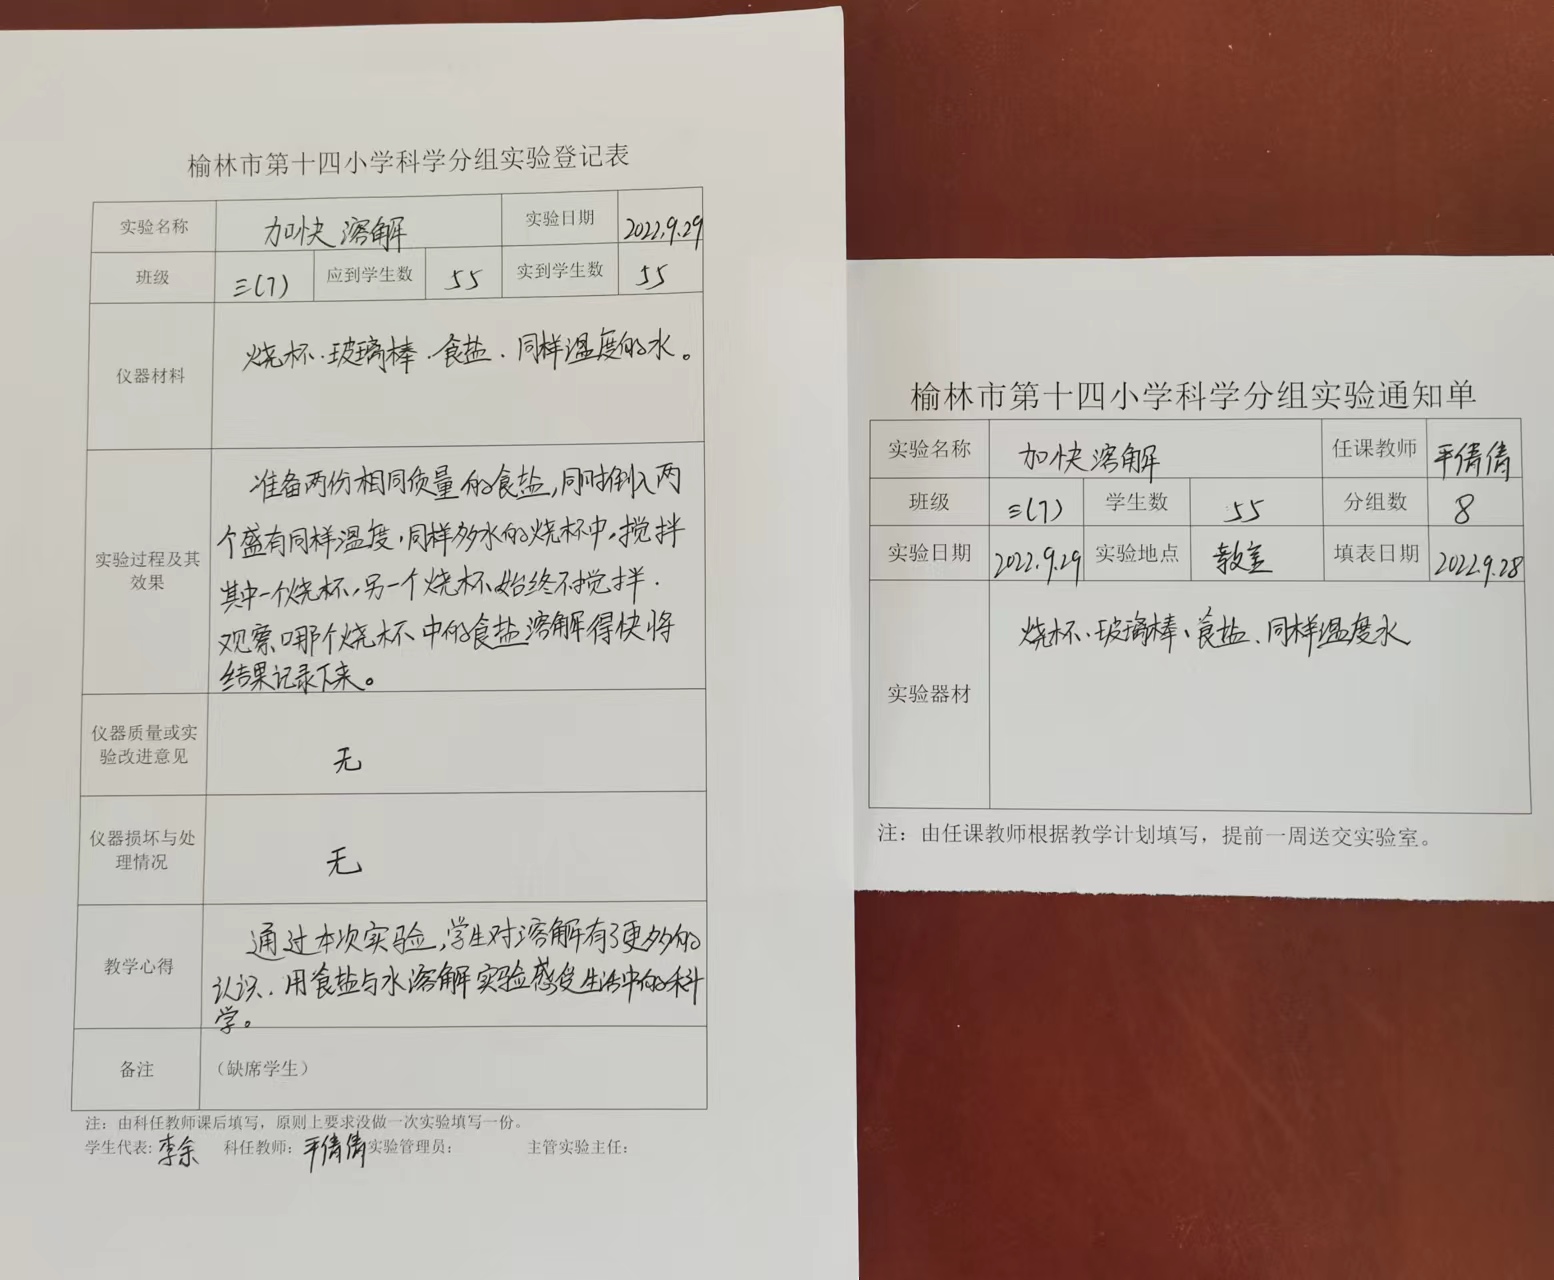 榆林市第十四小学科学分组实验登记表
实验名称 加快溶解 实验日期 2022.9.29
班级 三(7) 应到学生数 55 实到学生数 55
仪器材料 烧杯、玻璃棒、食盐、同样温度的水。
实验过程及其效果
准备两份相同质量的食盐,同时倒入两
个盛有同样温度,同样多水的烧杯中,搅拌
其中一个烧杯,另一个烧杯始终不搅拌.
观察哪个烧杯中的食盐溶解得快将
结果记录下来。
仪器质量或实
验改进意见
无
仪器损坏与处
理情况
无
教学心得
通过本次实验,学生对溶解有了更多的
认识、用食盐与水溶解实验感受生活中的科
学。
备注 (缺席学生)
注:由科任教师课后填写,原则上要求没做一次实验填写一份。
学生代表:李余 科任教师:平倩倩 实验管理员: 主管实验主任:
榆林市第十四小学科学分组实验通知单
实验名称 加快溶解 任课教师 平倩倩
班级 三(7) 学生数 55 分组数 8
实验日期 2022.9.29 实验地点 教室 填表日期 2022.9.28
实验器材 烧杯、玻璃棒、食盐、同样温度水
注:由任课教师根据教学计划填写,提前一周送交实验室。